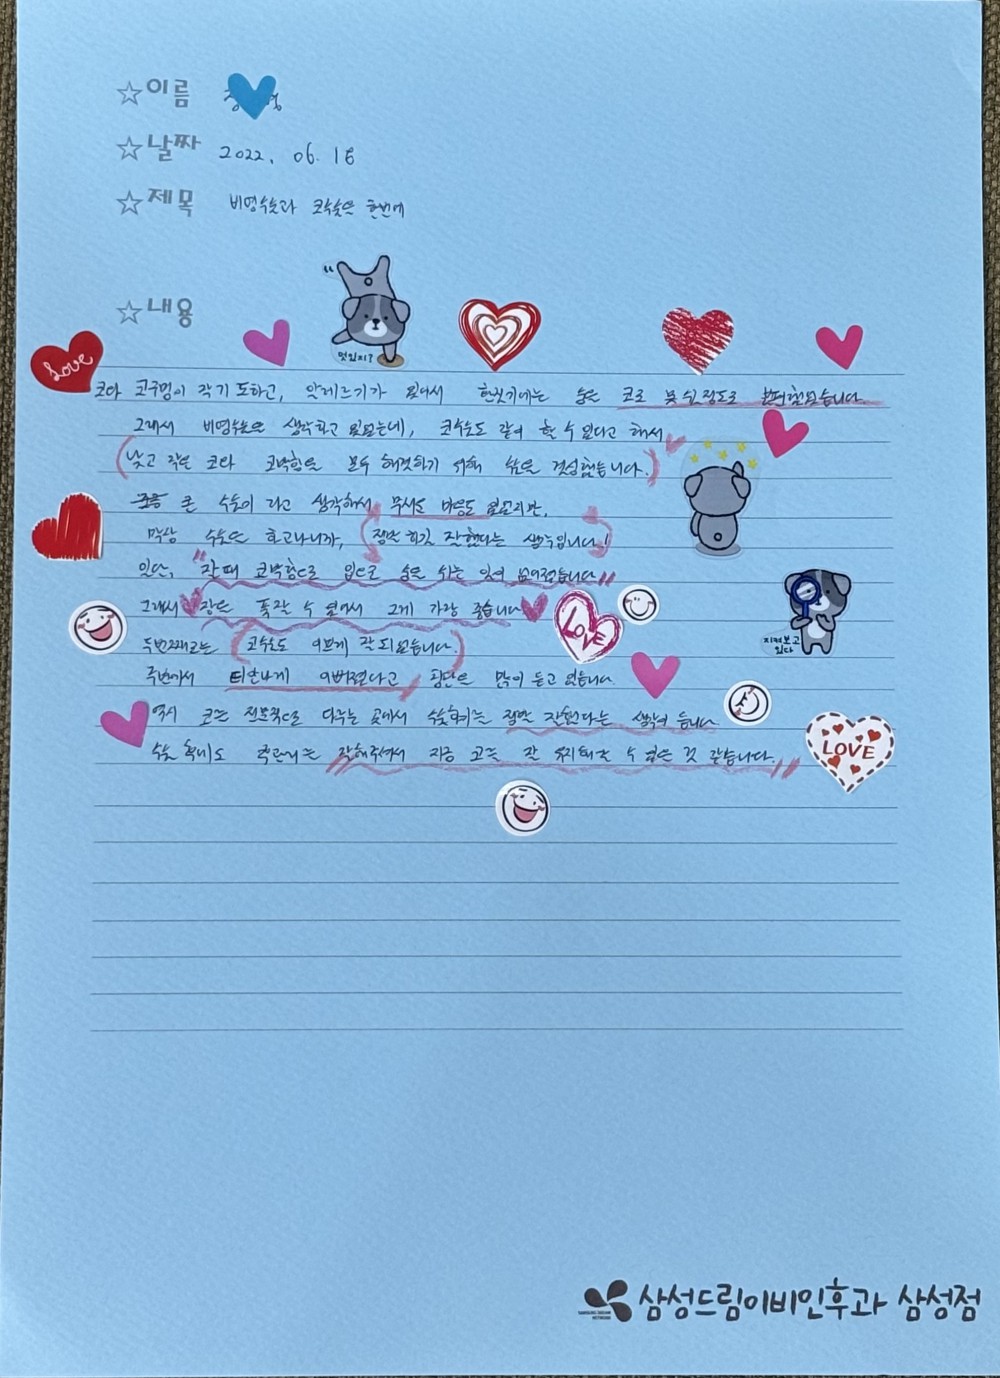 ☆이름
☆날짜 2022. 06. 16
☆제목 비염수술과 코수술을 한번에
멋있지?
☆내용
Love
코와 콧구멍이 작기도하고, 알레르기가 있어서 환절기에는 숨을 코로 못 쉴정도로 불편했었습니다.
그래서 비염수술을 생각하고 있었는데, 코수술도 같이 할 수 있다고 해서
(낮고 작은 코와 코막힘을 모두 해결하기 위해 수술을 결심했습니다.)
큰 수술이 라고 생각해서 무서도 비용도 있었지만,
막상 수술을 하고나니까, (정말 하길 잘했다는 생각입니다!)
일단, "잘때 코막힘으로 입으로 숨을 쉬는 일이 없어졌습니다"
그래서 잠을 푹잘 수 있어서 그게 가장 좋습니다
LOVE
지켜보고 있다
두번째로는 (코수술도 이쁘게 잘 되었습니다.)
주변에서 티안나게 이뻐졌다고 칭찬을 많이 듣고 있습니다
역시 코를 전문적으로 다루는 곳에서 수술하기를 정말 잘했다는 생각이 듭니다
수술 후에도 관리를 잘해주셔서 지금 코를 잘 유지해갈 수 있는 것 같습니다.
LOVE
삼성드림이비인후과 삼성점